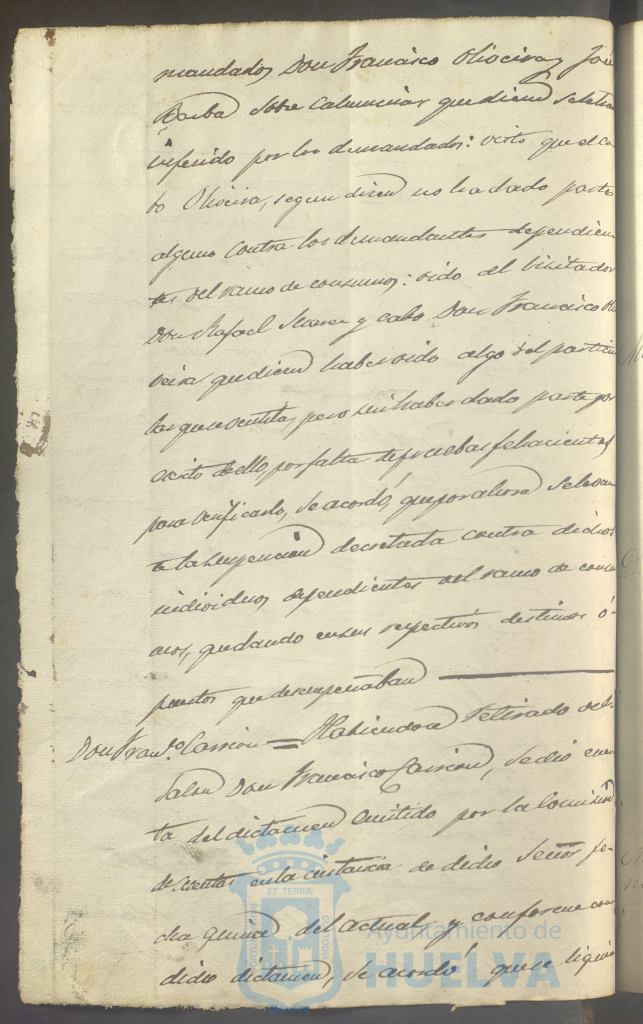 mandados Don Francisco Olioeira y José
Barba sobre calumnias que dicen se le han
inferido por los demandados: visto que el ca
bo Olioeira, segun dicen no ha dado parte
alguno contra los demandantes dependien
tes del ramo de consumos: oido al Visitador
Don Rafael y cabo Don Francisco Oli
veira que dicen haber oido algo del particu
lar que se ventila, pero sin haber dado parte por
escrito de ello, por falta de pruebas fehacientes
para verificarlo, se acordó, que por ahora se levan
te la suspencion decretada contra dichos
individuos dependientes del ramo de consu
mos, quedando en sus respectivos destinos ó
puntos que desempeñaban
Don Fran.co Carrion = Habiendose retirado del
Salon Don Francisco Carrion, se dió cuen
ta del dictamen emitido por la Comision
de Cuentas en la instancia de dicho Señor fe
cha quince del actual y conforme con
dicho dictamen, se acordó que se liqui
ET TERRÆ
Ayuntamiento de
HUELVA